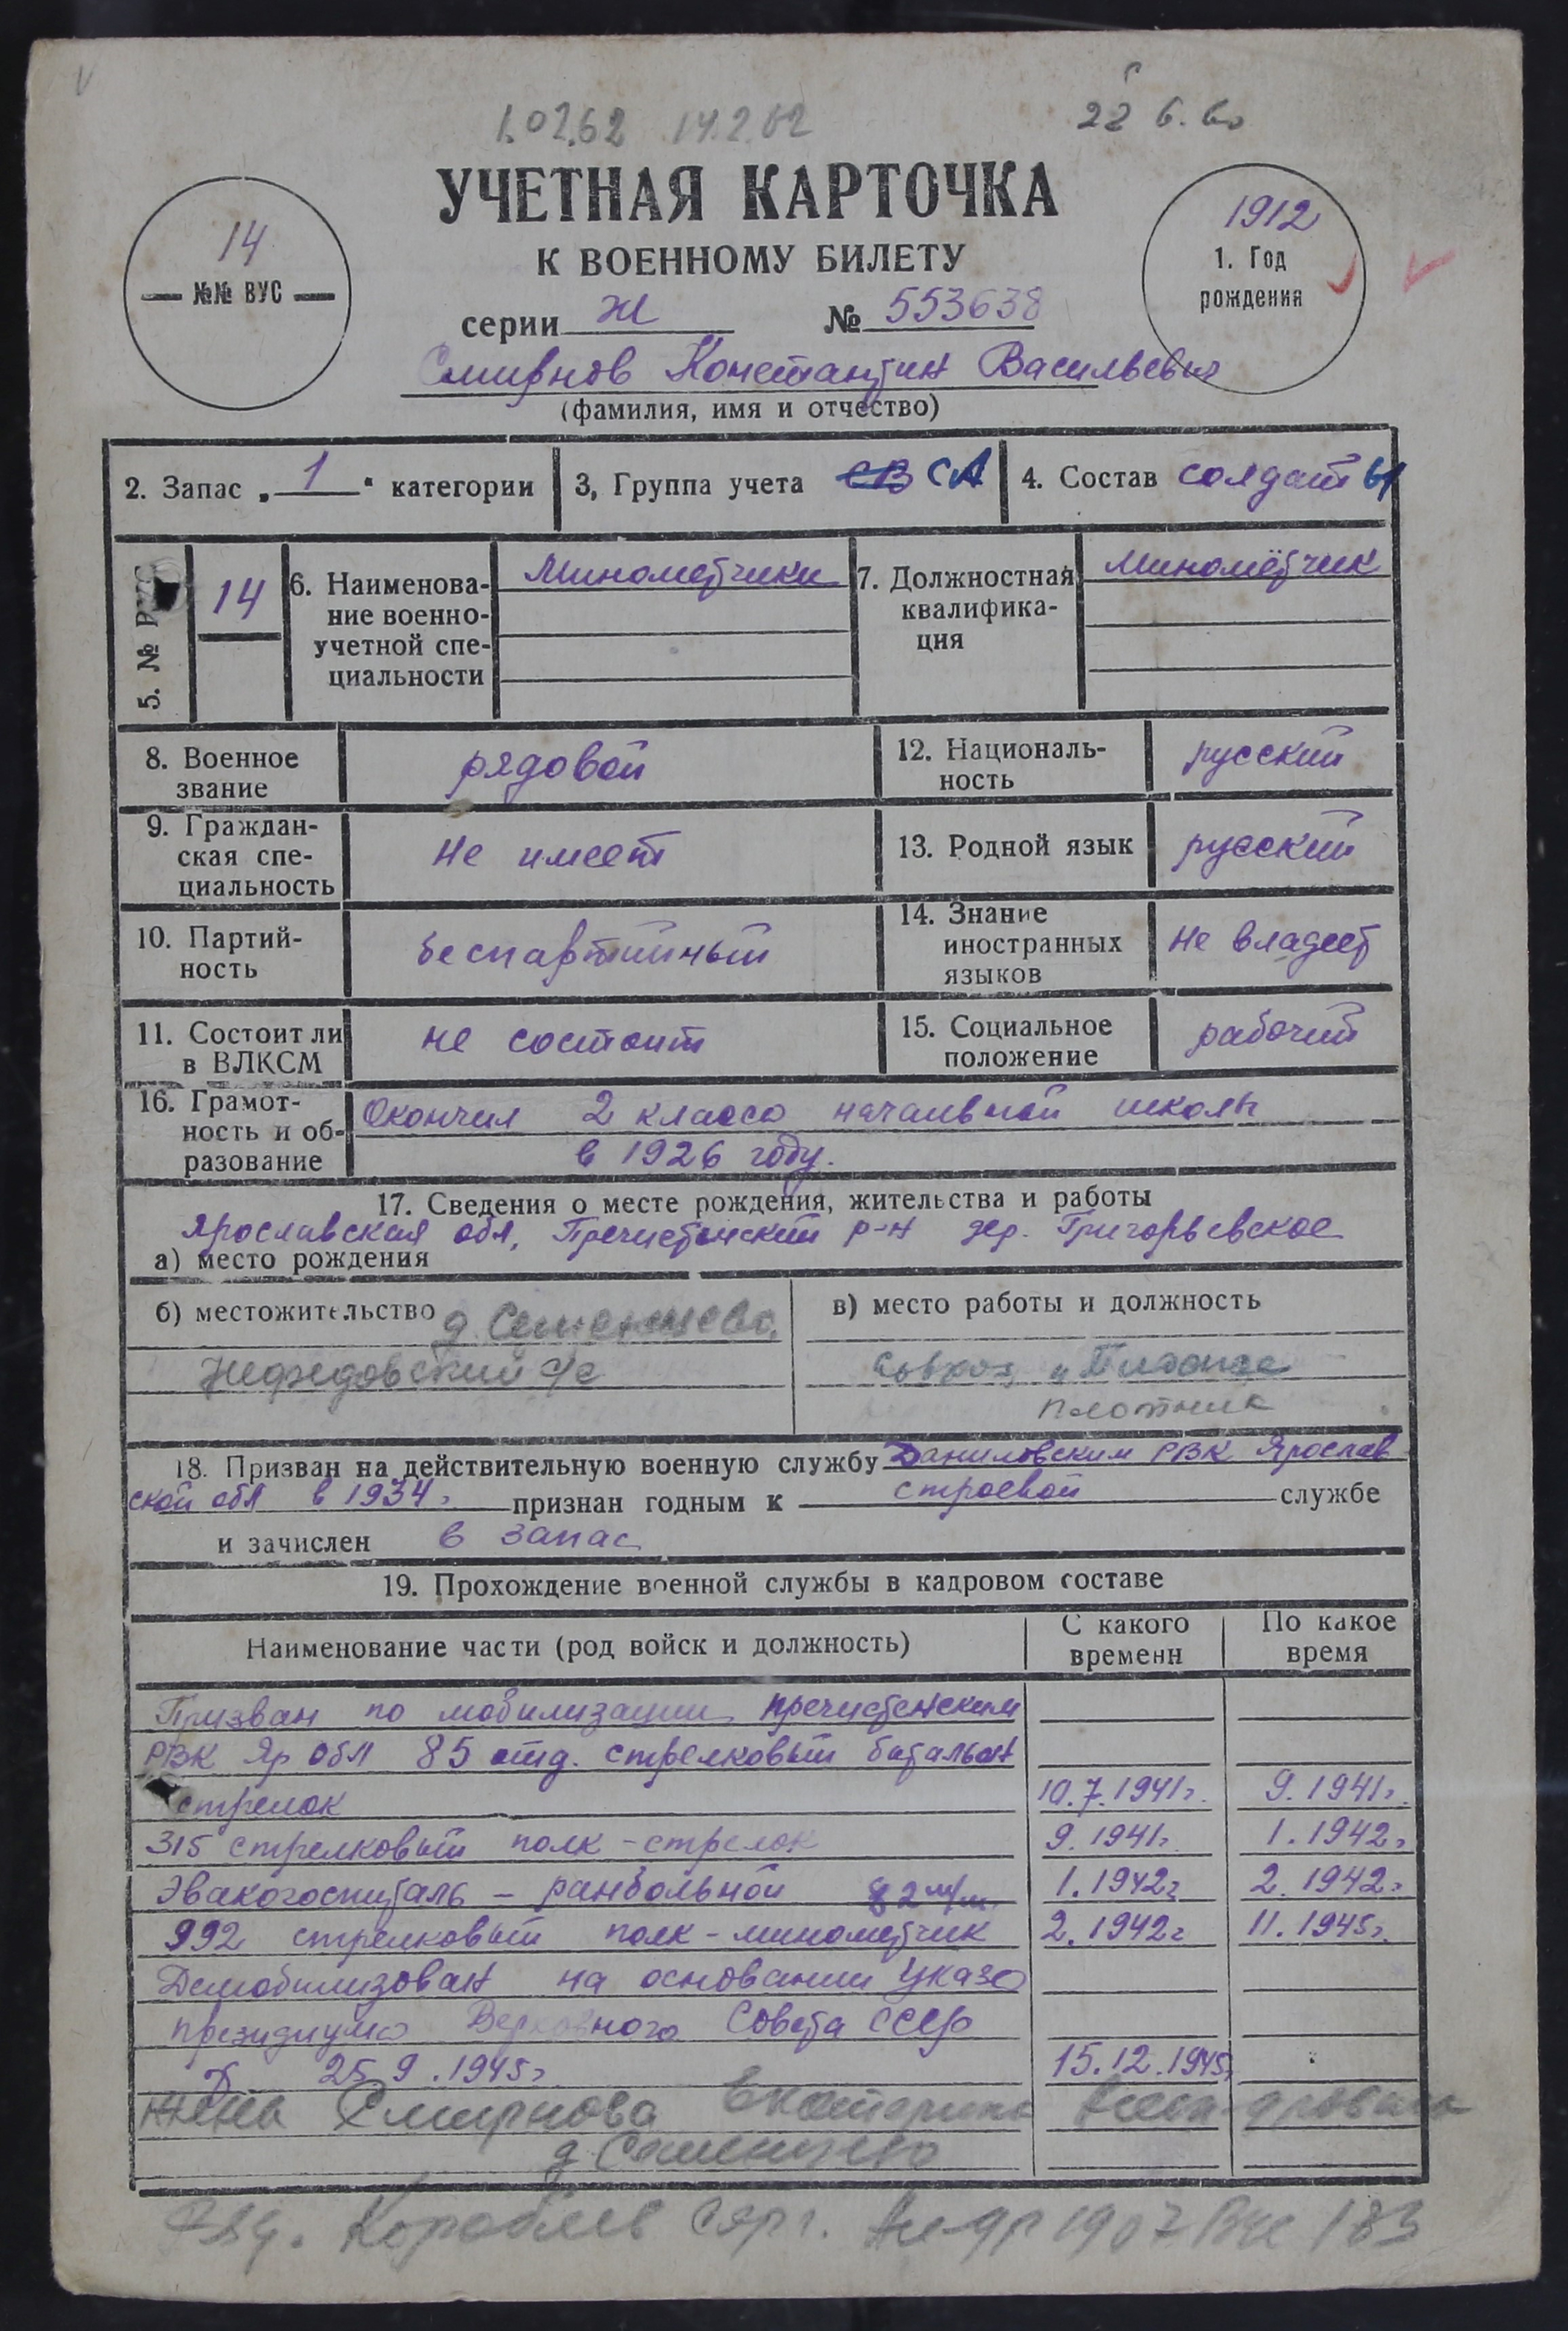 1.02.62 14.2.62
УЧЕТНАЯ КАРТОЧКА
К ВОЕННОМУ БИЛЕТУ
14
№№ ВУС
1912
1. Год
рождения
серии Ж № 553638
Смирнов Константин Васильевич
(фамилия, имя и отчество)
2. Запас „1“ категории
3, Группа учета СВ СА
4. Состав солдаты
5. № РУС
14
6. Наименова-
ние военно-
учетной спе-
циальности
Минометчики
7. Должностная
квалифика-
ция
Миномётчик
8. Военное
звание
рядовой
12. Националь-
ность
русский
9. Граждан-
ская спе-
циальность
не имеет
13. Родной язык
русский
10. Партий-
ность
беспартийный
14. Знание
иностранных
языков
не владеет
11. Состоит ли
в ВЛКСМ
не состоит
15. Социальное
положение
рабочий
16. Грамот-
ность и об-
разование
Окончил 2 класса начальной школы
в 1926 году.
17. Сведения о месте рождения, жительства и работы
Ярославская обл, Пречистенский р-н дер. Григорьевское
а) место рождения
б) местожительство д. Семенцево,
Нефедовский с/с
в) место работы и должность
Совхоз
плотник
18. Призван на действительную военную службу Даниловским РВК Ярослав
ской обл в 1934г признан годным к строевой службе
и зачислен в запас
19. Прохождение военной службы в кадровом составе
Наименование части (род войск и должность)
С какого
времени
По какое
время
Призван по мобилизации Пречистенским
РВК Яр обл 85 отд. стрелковый батальон
стрелок 10.7.1941г. 9.1941г.
315 стрелковый полк - стрелок 9.1941г. 1.1942г
Эвакогоспиталь - ранбольной 82 м/м. 1.1942г 2.1942г
992 стрелковый полк - минометчик 2.1942г 11.1945г.
Демобилизован на основании Указа
президиума Верховного Совета СССР
25.9.1945г. 15.12.1945г
жена Смирнова Екатерина
д Семенцево
Кораблев 1907 183